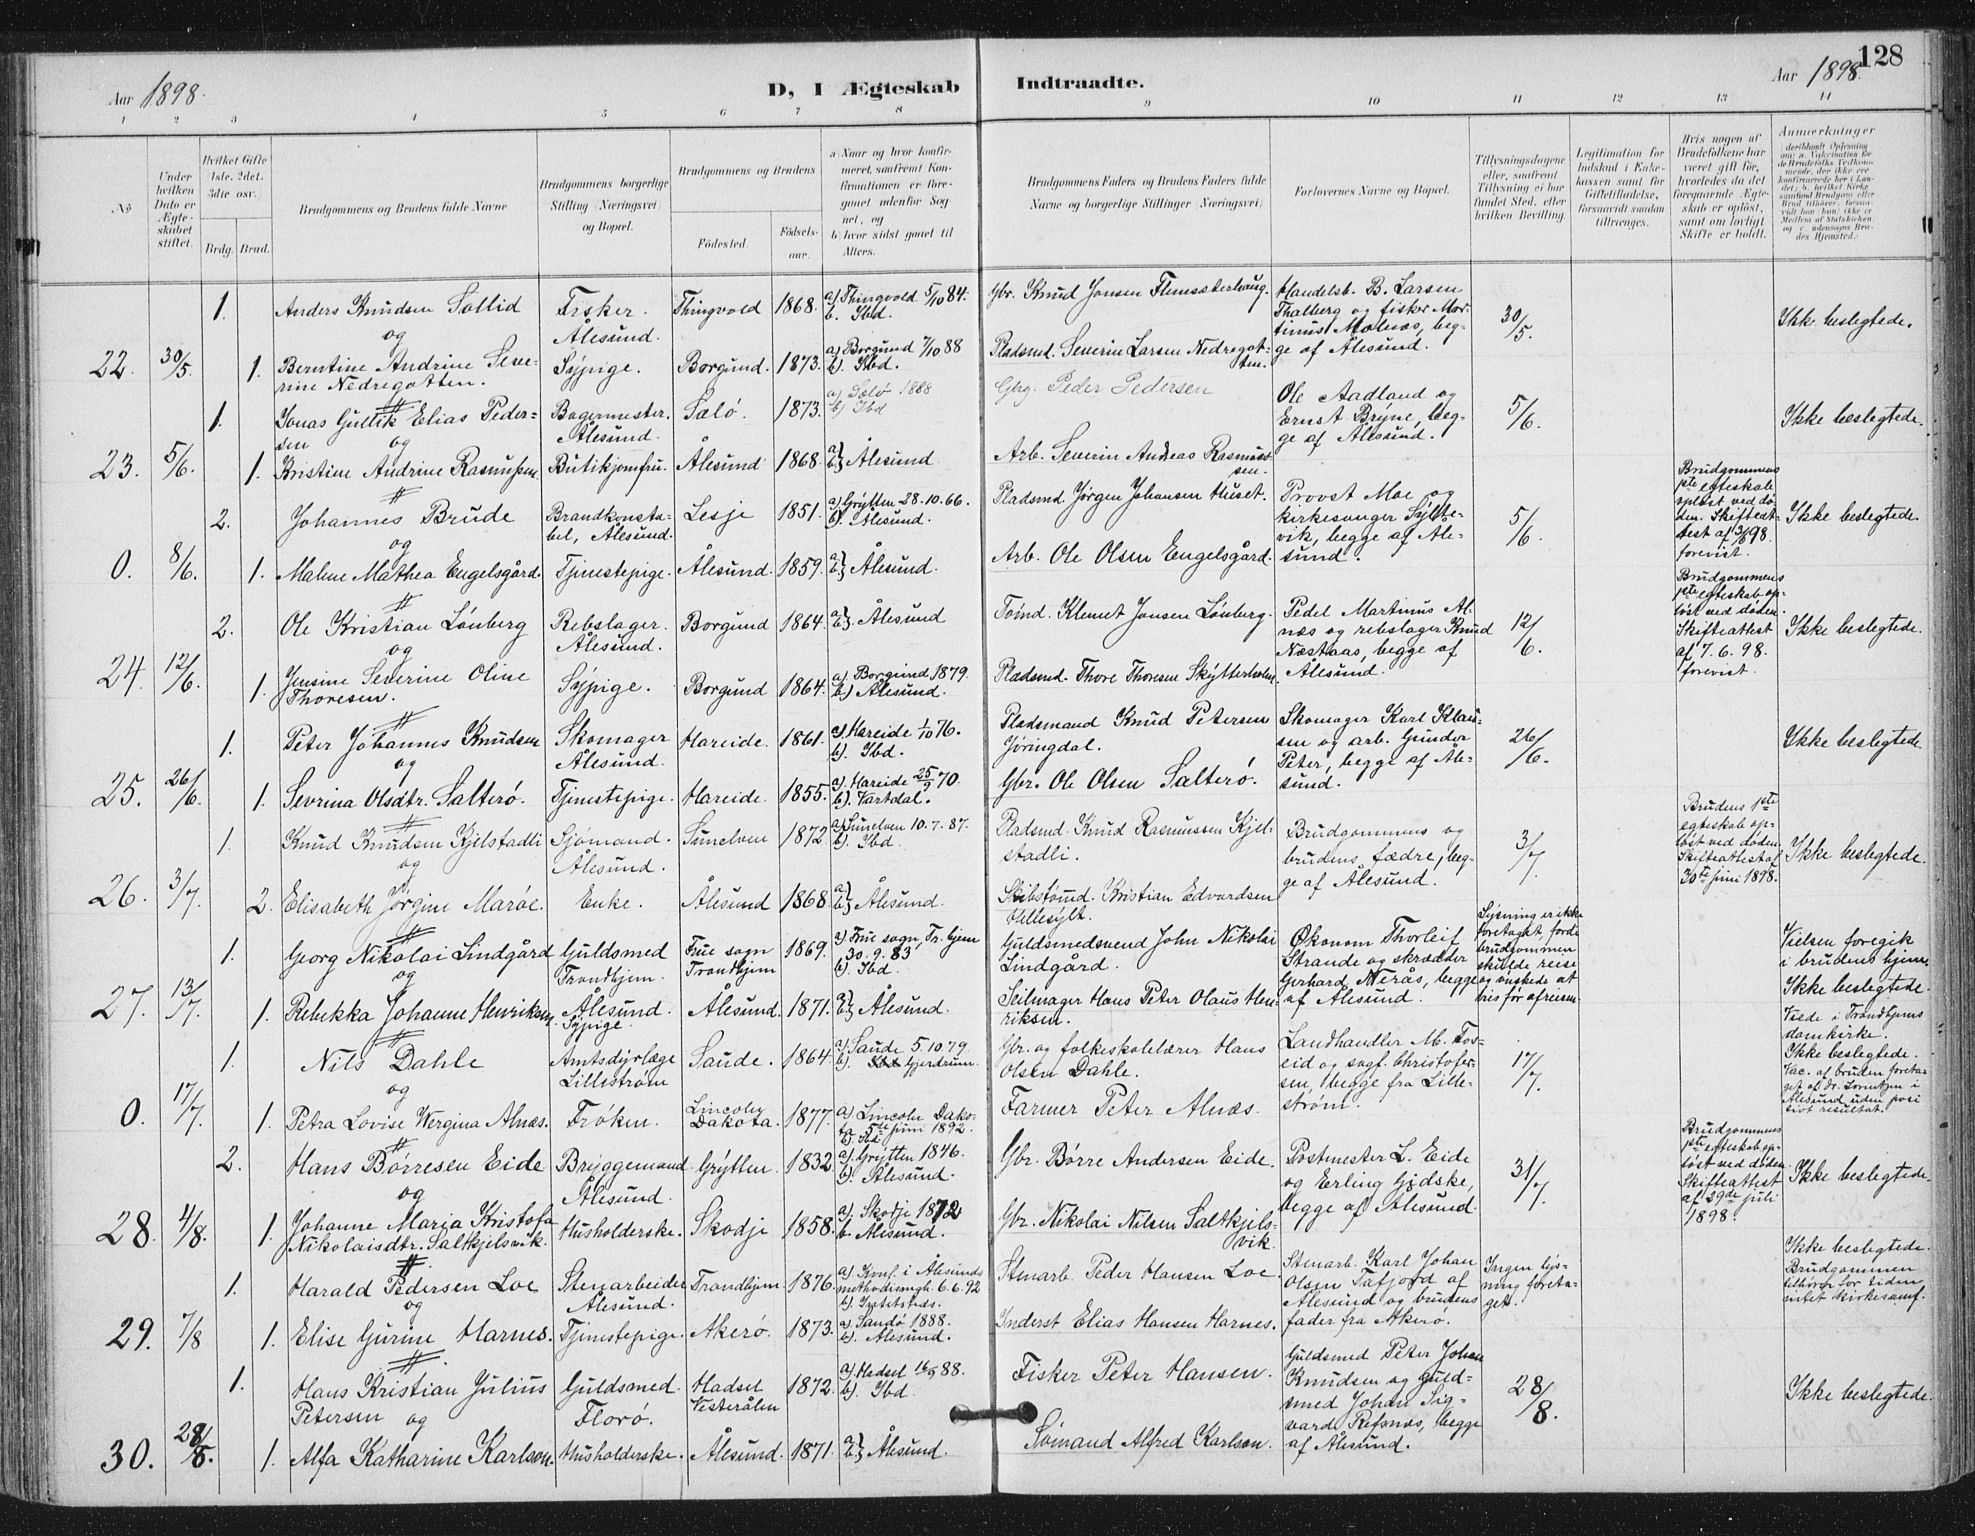 128
Aar 1898.
D, I Ægteskab Indtraadte.
Aar 1898.
1 2 3 4 5 6 7 8 9 10 11 12 13 14
No
Under hvilken Dato er Ægteskabet stiftet.
Hvilket Gifte 1ste, 2det, 3die osv.
Brdg. Brud.
Brudgommens og Brudens fulde Navne
Brudgommens borgerlige Stilling (Næringsvei) og Bopæl.
Brudgommens og Brudens
Födested.
Födselsaar.
a Naar og hvor konfirmeret, saafremt Konfirmationen er foregaaet udenfor Sognet, og
b hvor sidst gaaet til Alters.
Brudgommens Faders og Brudens Faders fulde Navne og borgerlige Stillinger (Næringsvei)
Forlovernes Navne og Bopæl.
Tillysningsdagene eller, saafremt Tillysning ei har fundet Sted, efter hvilken Bevilling.
Legitimation for Indskud i Enkekassen samt for Giftetilladelse, forsaavidt saadan tiltrænges.
Hvis nogen af Brudefolkene har været gift før, hvorledes da det foregaaende Ægteskab er opløst, samt om lovligt Skifte er holdt.
Anmærkninger
1. Anders Knudsen Sollid
og
Fisker.
Ålesund.
Thingvold 1868.
a) Thingvold 5/10 84.
b. Ibd.
Gbr. Knud Jonsen Flemsæterhaug.
Handelsb. B. Larsen
Thalberg og fisker Mortinus Molnæs, begge af Ålesund.
30/5.
Ikk. beslegtede.
22. 30/5 1. Berntine Andrine Severine Nedregotten.
Sypige.
Borgund. 1873.
a) Borgund 7/10 88
b). Ibd.
Pladsmd. Severin Larsen Nedregotten.
1. Jonas Gullik Elias Pedersen
og
Bagermester.
Ålesund.
Sælø. 1873.
a) Sælø 1888
b) Ibd
Gbrg. Peder Pedersen
Ole Aadland og
Ernst Bryne, begge af Ålesund.
5/6.
Ikke beslegtede.
23. 5/6. 1. Kristine Andrine Rasmussen
Butikjomfru.
Ålesund 1868.
a) b) Ålesund
Arb. Severin Andreas Rasmussen.
2. Johannes Brude
og
Brandkonstabel, Ålesund.
Lesje 1851.
a) Grytten 28.10.66.
b). Ålesund.
Pladsmd. Jørgen Johansen Huset.
Provst Moe og
kirkesanger Syltevik, begge af Ålesund.
5/6.
Brudgommens
1ste egteskab
opløst ved døden. Skifteattest af 3/6 98.
forevist.
Ikke beslegtede.
0. 8/6. 1. Malene Mathea Engelsgård.
Tjenestepige.
Ålesund. 1859.
a) b) Ålesund.
Arb. Ole Olsen Engelsgård.
2. Ole Kristian Lønberg
og
Rebslager.
Ålesund.
Borgund 1864.
a) b). Ålesund
Tømd. Klemet Jonsen Lønberg.
Pedel Martinus Alnæs og rebslager Knud
Næstaas, begge af
Ålesund.
12/6.
Brudgommens
1ste egteskab opløst ved døden.
Skifteattest
af 7.6.98.
forevist.
Ikke beslegtede.
24. 12/6. 1. Jensine Severine Oline
Thoresen.
Sypige.
Borgund 1864.
a) Borgund 1879.
b.) Ålesund.
Pladsmd. Thore Thoresen Skytterholm.
1. Peter Johannes Knudsen
og
Skomager
Ålesund.
Hareide. 1861.
a) Hareide 1/10 76.
b). Ibd.
Pladsmand Knud Petersen
Jøringdal.
Skomager Karl Klausen og arb. Gunder
Peter, begge af Ålesund.
26/6.
Ikke beslegtede
25. 26/6. 1. Sevrina Olsdtr. Salterø.
Tjenestepige.
Hareide. 1855.
a). Hareide 25/9 70.
b). Vartdal.
Gbr. Ole Olsen Salterø.
1. Knud Knudsen Kjelstadli
og
Sjømand.
Ålesund.
Sunelven 1872
a) Sunelven 10.7.87.
b). Ibd.
Pladsmd. Knud Rasmussen Kjelstadli.
Brudgommens og
brudens fædre, begge af Ålesund.
3/7.
Brudens 1ste
egteskab opløst ved døden.
Skifteattest af
30te juni 1898.
Ikke beslegtede.
26. 3/7. 2. Elisabeth Jørgine Marøe.
Enke.
Ålesund 1868.
a) b) Ålesund.
Skibstømd. Kristian Edvardsen
Hellesylt.
1. Georg Nikolai Lindgård
og
Guldsmed
Trondhjem.
Frue sogn
Trondhjem
1869.
a) Frue sogn, Tr.hjem
30.9.83
b). Ibd.
Guldsmedsvend John Nikolai
Lindgård.
Økonom Thorleif
Strande og skrædder
Gerhard Nerås, begge
af Ålesund.
Lysning er ikke
foretaget fordi
brudgommen
skulde reise
og ønskede at
vies før afreisen
Vielsen foregik
i brudens hjem.
Ikke beslegtede.
27. 13/7. 1. Rebekka Johanne Henriksen
Ålesund.
Sypige.
Ålesund. 1871.
a) b) Ålesund.
Seilmager Hans Peter Olaus Henriksen.
1. Nils Dahle
og
Amtsdyrlæge
Lillestrøm
Saude. 1864
a) Saude 5.10.79.
b). Gjerdrum.
Gbr. og folkeskolelærer Hans
Olsen Dahle.
Landhandler M. Foseid og sagf. Christofersen, begge fra Lillestrøm.
17/7.
Viede i Trondhjems
domkirke.
Ikke beslegtede.
Vac. af bruden foretaget af dr. Lorentzen i
Ålesund uden positivt resultat.
0. 17/7. 1. Petra Lovise Wergina Alnæs.
Frøken.
Lincoln
Dakota. 1877.
a). Lincoln Dakota 5te juni 1892.
b. Ibd.
Farmer Peter Alnæs.
2. Hans Børresen Eide
og
Bryggemand
Ålesund.
Grytten. 1832
a) Grytten 1846.
b). Ålesund.
Gbr. Børre Andersen Eide.
Postmester L. Eide
og Erling Gjdske,
begge af Ålesund.
31/7.
Brudgommens
1ste egteskab opløst ved døden
Skifteattest
af 29de juli
1898.
Ikke beslegtede.
28. 4/8. 1. Johanne Maria Kristofa
Nikolaisdtr. Saltkjelsvik.
Husholderske.
Skodje 1858.
a). Skodje 1872
b. Ålesund.
Gbr. Nikolai Nilsen Saltkjelsvik.
1. Harald Pedersen Loe
og
Stenarbeider
Ålesund.
Trondhjem. 1876.
a). Konf. i Ålesunds
methodismgh. 6.6.92
b). Intetsteds.
Stenarb. Peder Hansen Loe.
Stenarb. Karl Johan
Olsen Tafjord af
Ålesund og brudens
fader fra Akerø.
Ingen lysning foretaget.
Ikke beslegtede.
Brudgommen
tilhører for tiden
intet kirkesamf.
29. 7/8 1. Elise Gurine Harnes.
Tjenestepige.
Akerø. 1873.
a). Sandø 1888.
b). Ålesund.
Inderst Elias Hansen Harnes.
1. Hans Kristian Julius
Petersen og
Guldsmed.
Florø.
Hadsel
Vesterålen
1872.
a) Hadsel 16/9 88.
b). Ibd.
Fisker Peter Hansen.
Guldsmed Peter Johan
Knudsen og guldsmed Johan Sigvard Refsnæs, begge
af Ålesund.
28/8.
Ikke beslegtede.
30. 28/8. 1. Alfa Katharine Karlson.
Husholderske.
Ålesund. 1871.
a) b) Ålesund.
Sømand Alfred Karlson.